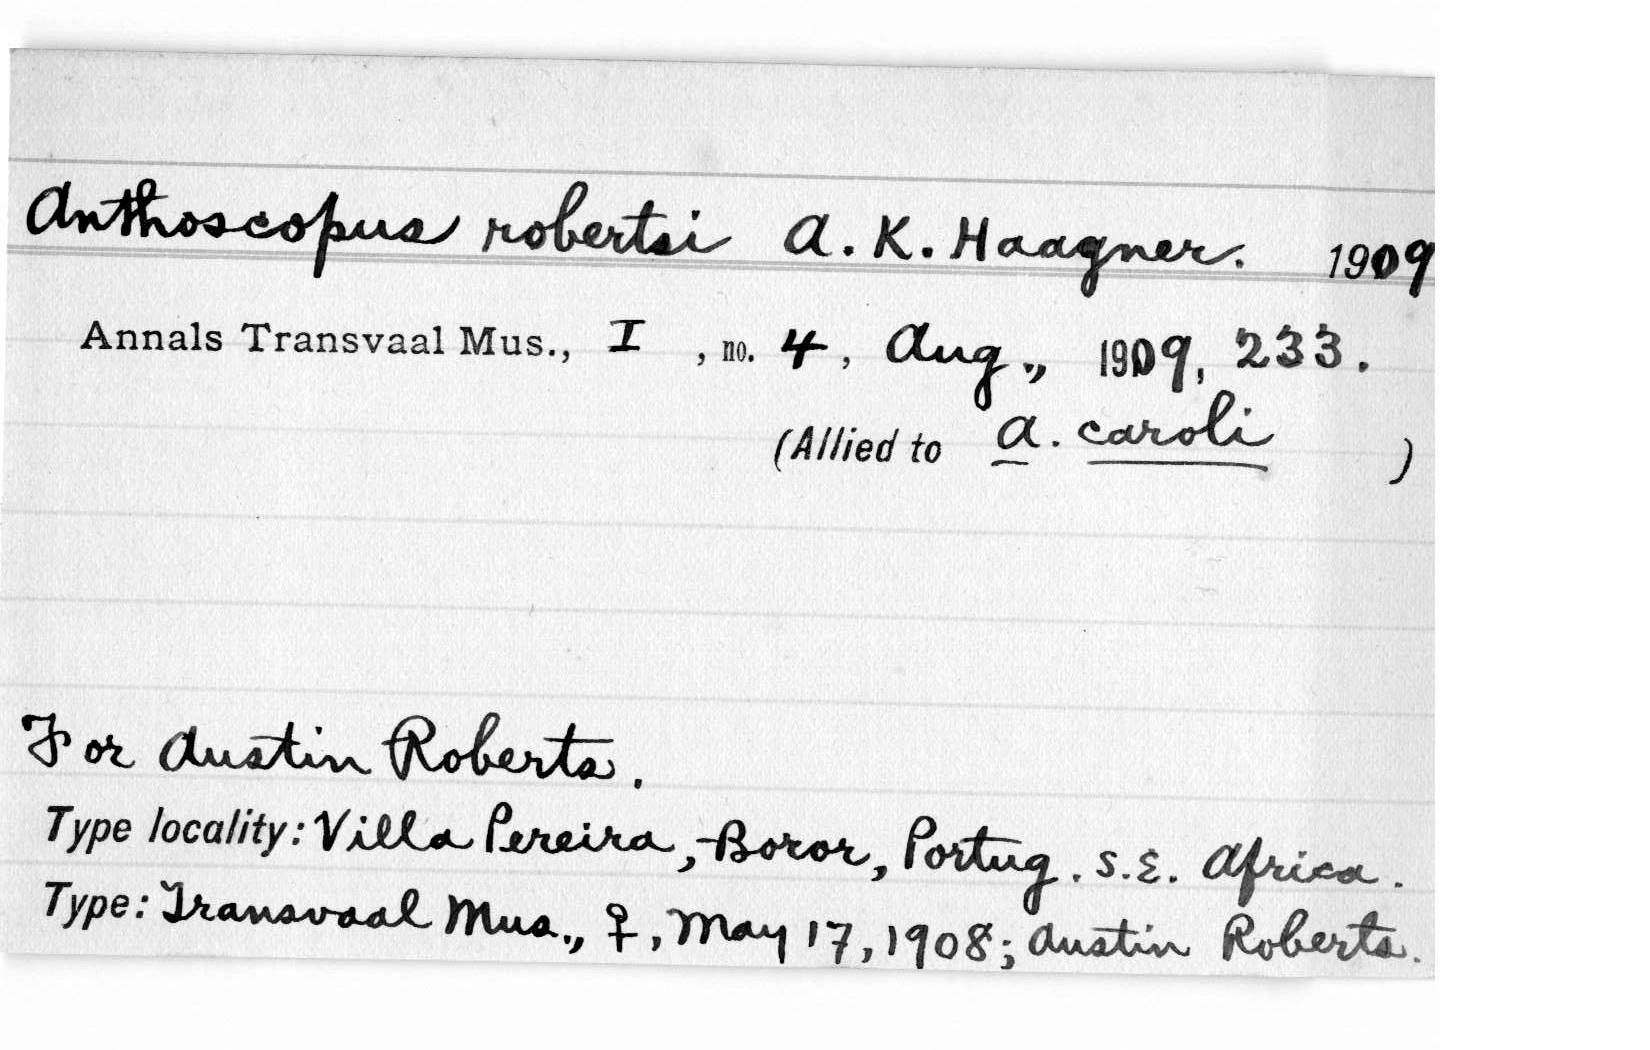 Anthoscopus robertsi A. K. Haagner. 1909
Annals Transvaal Mus., I , no. 4 , Aug., 1909, 233.
(Allied to A. caroli )
For Austin Roberts.
Type locality: Villa Pereira, Boror, Portug. S.E. Africa.
Type: Transvaal Mus., ♀, May 17, 1908; Austin Roberts.